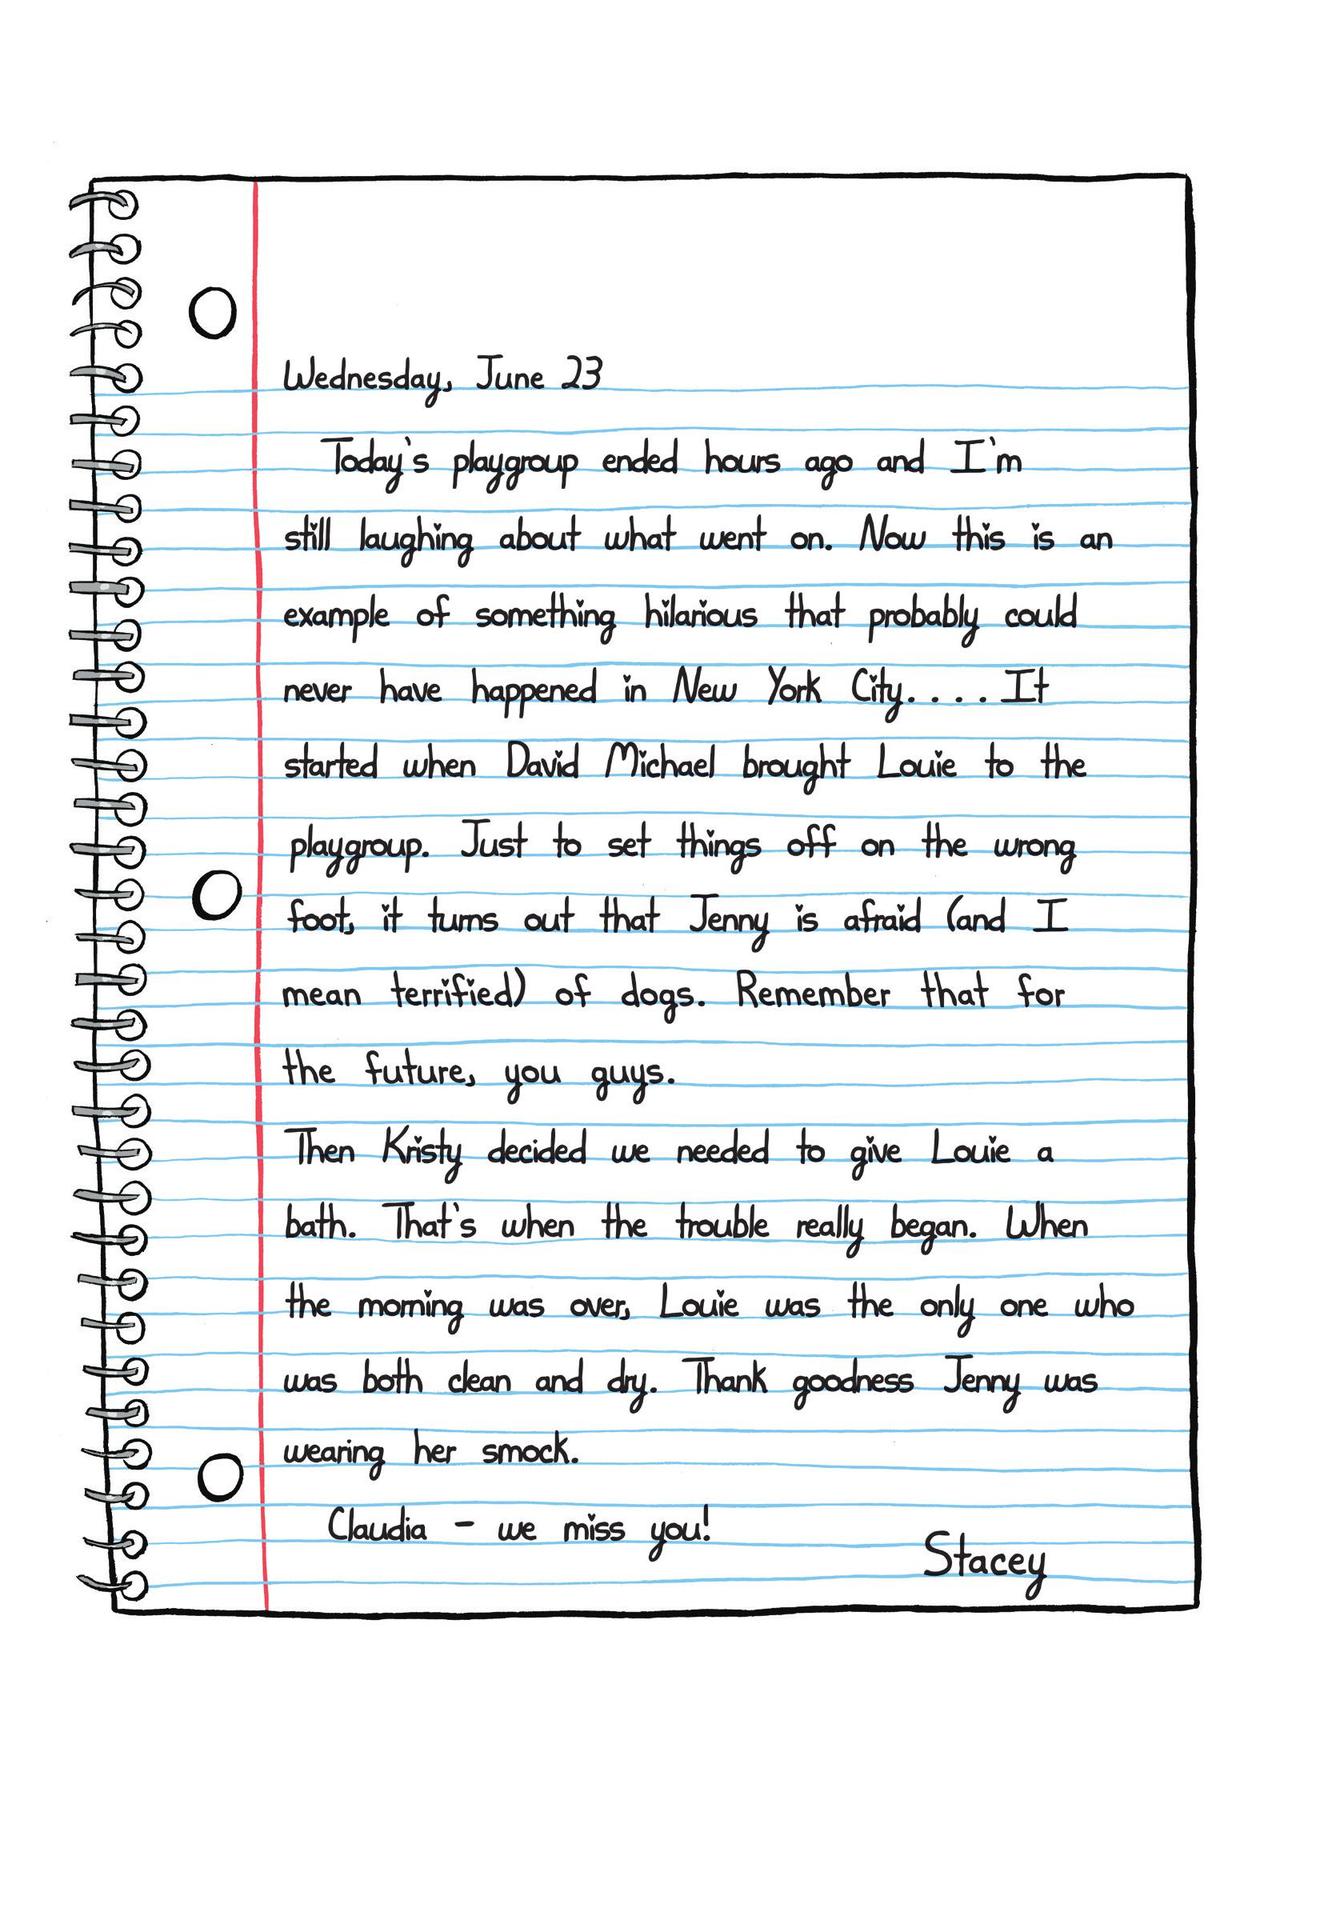 Wednesday, June 23
Today's playgroup ended hours ago and I'm
still laughing about what went on. Now this is an
example of something hilarious that probably could
never have happened in New York City.... It
started when David Michael brought Louie to the
playgroup. Just to set things off on the wrong
foot, it turns out that Jenny is afraid (and I
mean terrified) of dogs. Remember that for
the future, you guys.
Then Kristy decided we needed to give Louie a
bath. That's when the trouble really began. When
the morning was over, Louie was the only one who
was both clean and dry. Thank goodness Jenny was
wearing her smock.
Claudia - we miss you!
Stacey